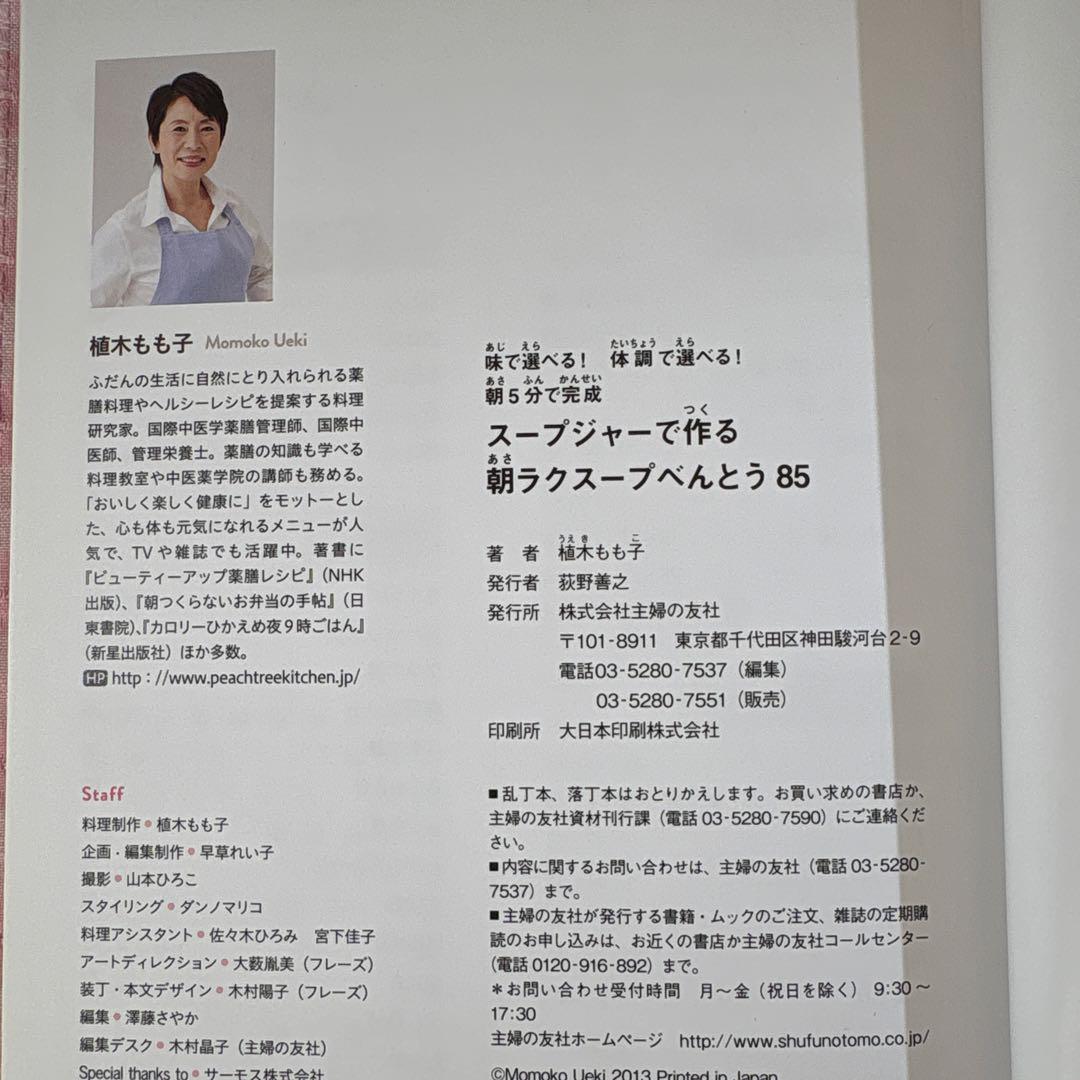 植木もも子 Momoko Ueki
ふだんの生活に自然にとり入れられる薬
膳料理やヘルシーレシピを提案する料理
研究家。国際中医学薬膳管理師、国際中
医師、管理栄養士。薬膳の知識も学べる
料理教室や中医薬学院の講師も務める。
「おいしく楽しく健康に」をモットーとし
た、心も体も元気になれるメニューが人
気で、TVや雑誌でも活躍中。著書に
『ビューティーアップ薬膳レシピ』(NHK
出版)、『朝つくらないお弁当の手帖』(日
東書院)、『カロリーひかえめ夜9時ごはん』
(新星出版社)ほか多数。
HP http://www.peachtreekitchen.jp/
Staff
料理制作●植木もも子
企画・編集制作●早草れい子
撮影●山本ひろこ
スタイリング●ダンノマリコ
料理アシスタント●佐々木ひろみ 宮下佳子
アートディレクション●大薮胤美(フレーズ)
装丁・本文デザイン●木村陽子(フレーズ)
編集●澤藤さやか
編集デスク●木村晶子(主婦の友社)
Special thanks to●サーモス株式会社
あじ えら たいちょう えら
味で選べる! 体調で選べる!
あさ ふん かんせい
朝5分で完成
つく
スープジャーで作る
あさ
朝ラクスープべんとう85
うえき こ
著 者 植木もも子
発行者 荻野善之
発行所 株式会社主婦の友社
〒101-8911 東京都千代田区神田駿河台2-9
電話03-5280-7537(編集)
03-5280-7551(販売)
印刷所 大日本印刷株式会社
■乱丁本、落丁本はおとりかえします。お買い求めの書店か、
主婦の友社資材刊行課(電話03-5280-7590)にご連絡くだ
さい。
■内容に関するお問い合わせは、主婦の友社(電話03-5280-
7537)まで。
■主婦の友社が発行する書籍・ムックのご注文、雑誌の定期購
読のお申し込みは、お近くの書店か主婦の友社コールセンター
(電話0120-916-892)まで。
*お問い合わせ受付時間 月～金(祝日を除く) 9:30～
17:30
主婦の友社ホームページ http://www.shufunotomo.co.jp/
©Momoko Ueki 2013 Printed in Japan